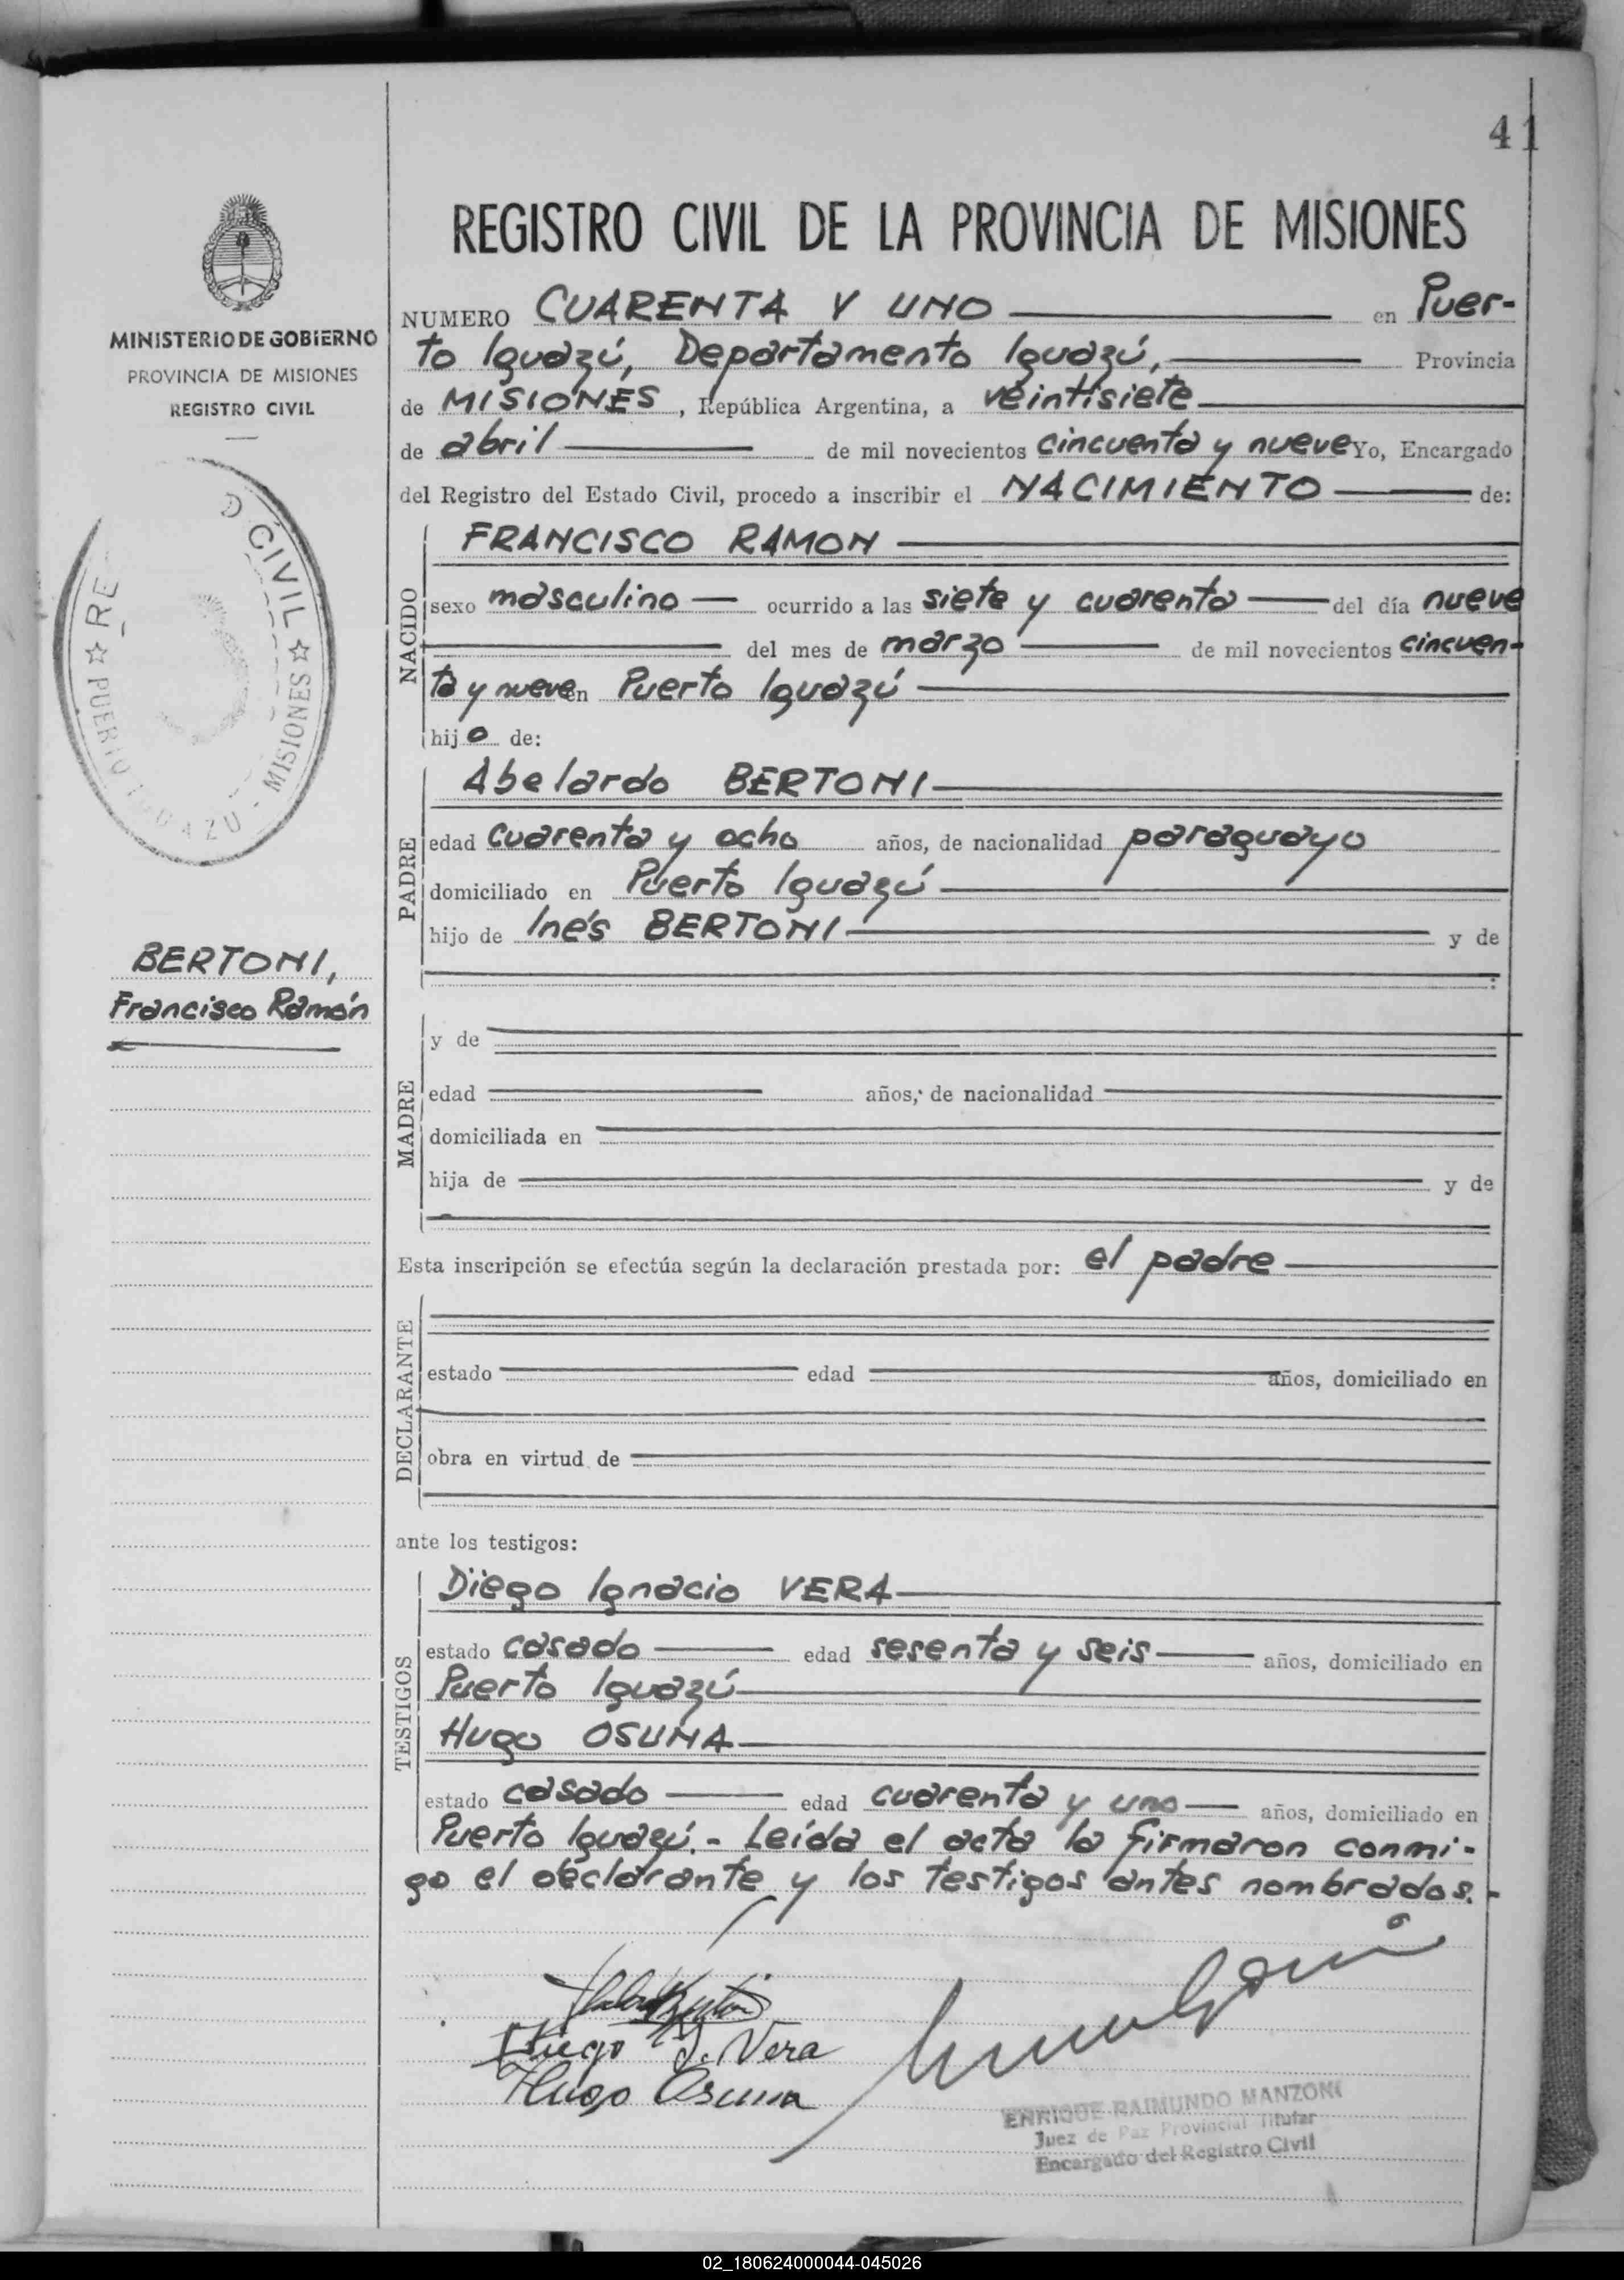 41
REGISTRO CIVIL DE LA PROVINCIA DE MISIONES
MINISTERIO DE GOBIERNO
PROVINCIA DE MISIONES
REGISTRO CIVIL
RE D CIVIL
PUERTO IGUAZU - MISIONES
BERTONI,
Francisco Ramón
NUMERO CUARENTA Y UNO en Puer-
to Iguazú, Departamento Iguazú, Provincia
de MISIONES, República Argentina, a veintisiete
de abril de mil novecientos cincuenta y nueve Yo, Encargado
del Registro del Estado Civil, procedo a inscribir el NACIMIENTO de:
NACIDO
FRANCISCO RAMON
sexo masculino ocurrido a las siete y cuarenta del día nueve
del mes de marzo de mil novecientos cincuen-
ta y nueve en Puerto Iguazú
hijo de:
PADRE
Abelardo BERTONI
edad cuarenta y ocho años, de nacionalidad paraguayo
domiciliado en Puerto Iguazú
hijo de Inés BERTONI y de
:
MADRE
y de
edad años, de nacionalidad
domiciliada en
hija de y de
Esta inscripción se efectúa según la declaración prestada por: el padre
DECLARANTE
estado edad años, domiciliado en
obra en virtud de
ante los testigos:
TESTIGOS
Diego Ignacio VERA
estado casado edad sesenta y seis años, domiciliado en
Puerto Iguazú
Hugo OSUNA
estado casado edad cuarenta y uno años, domiciliado en
Puerto Iguazú.- Leída el acta la firmaron conmi-
go el declarante y los testigos antes nombrados.-
Diego I. Vera
Hugo Osuna
ENRIQUE RAIMUNDO MANZONI
Juez de Paz Provincial Titular
Encargado del Registro Civil
02_180624000044-045026